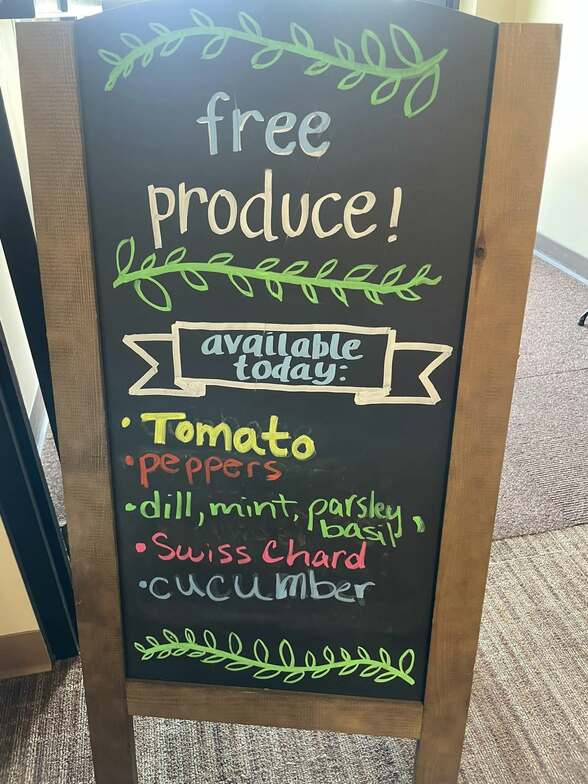 free
produce!
available
today:
• Tomato
• peppers
• dill, mint, parsley,
basil
• Swiss Chard
• cucumber